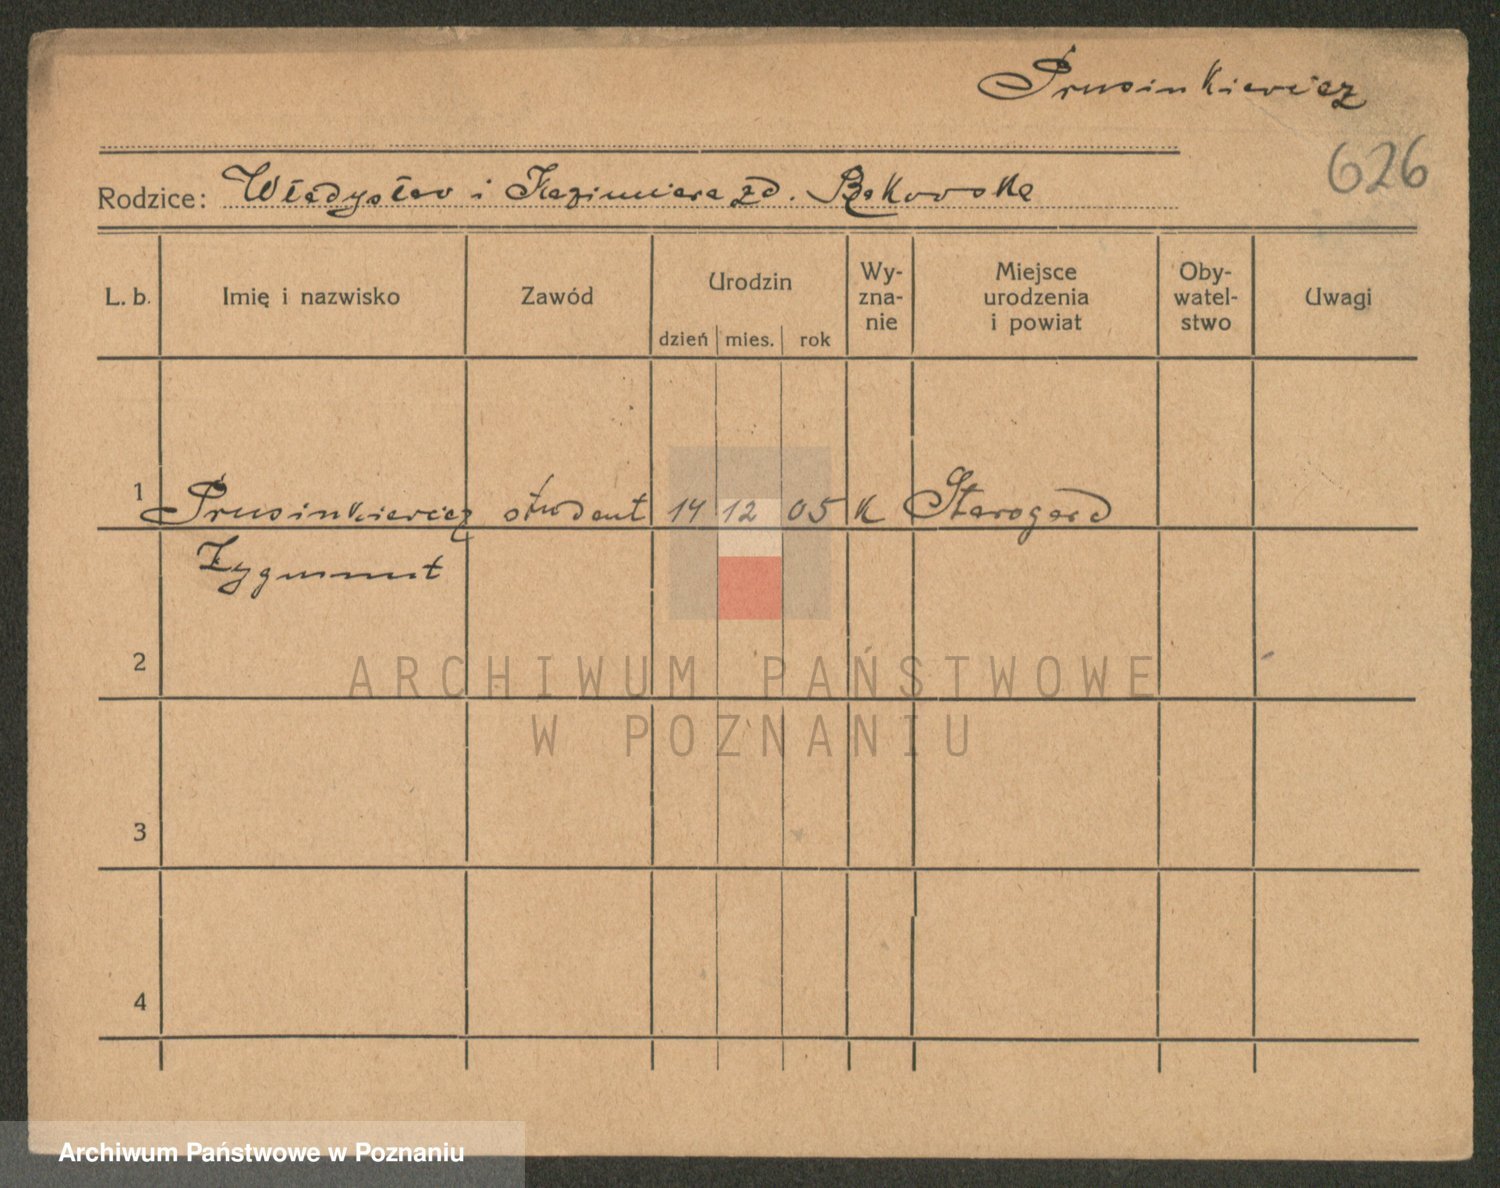 Prusinkiewicz
626
Rodzice: Władysław i Kazimiera zd. Bąkowska
L. b. Imię i nazwisko Zawód Urodzin dzień mies. rok Wy-zna-nie Miejsce urodzenia i powiat Oby-watel-stwo Uwagi
1 Prusinkiewicz student 14 12 05 K Starogard
Zygmunt
2
ARCHIWUM PAŃSTWOWE
W POZNANIU
3
4
Archiwum Państwowe w Poznaniu